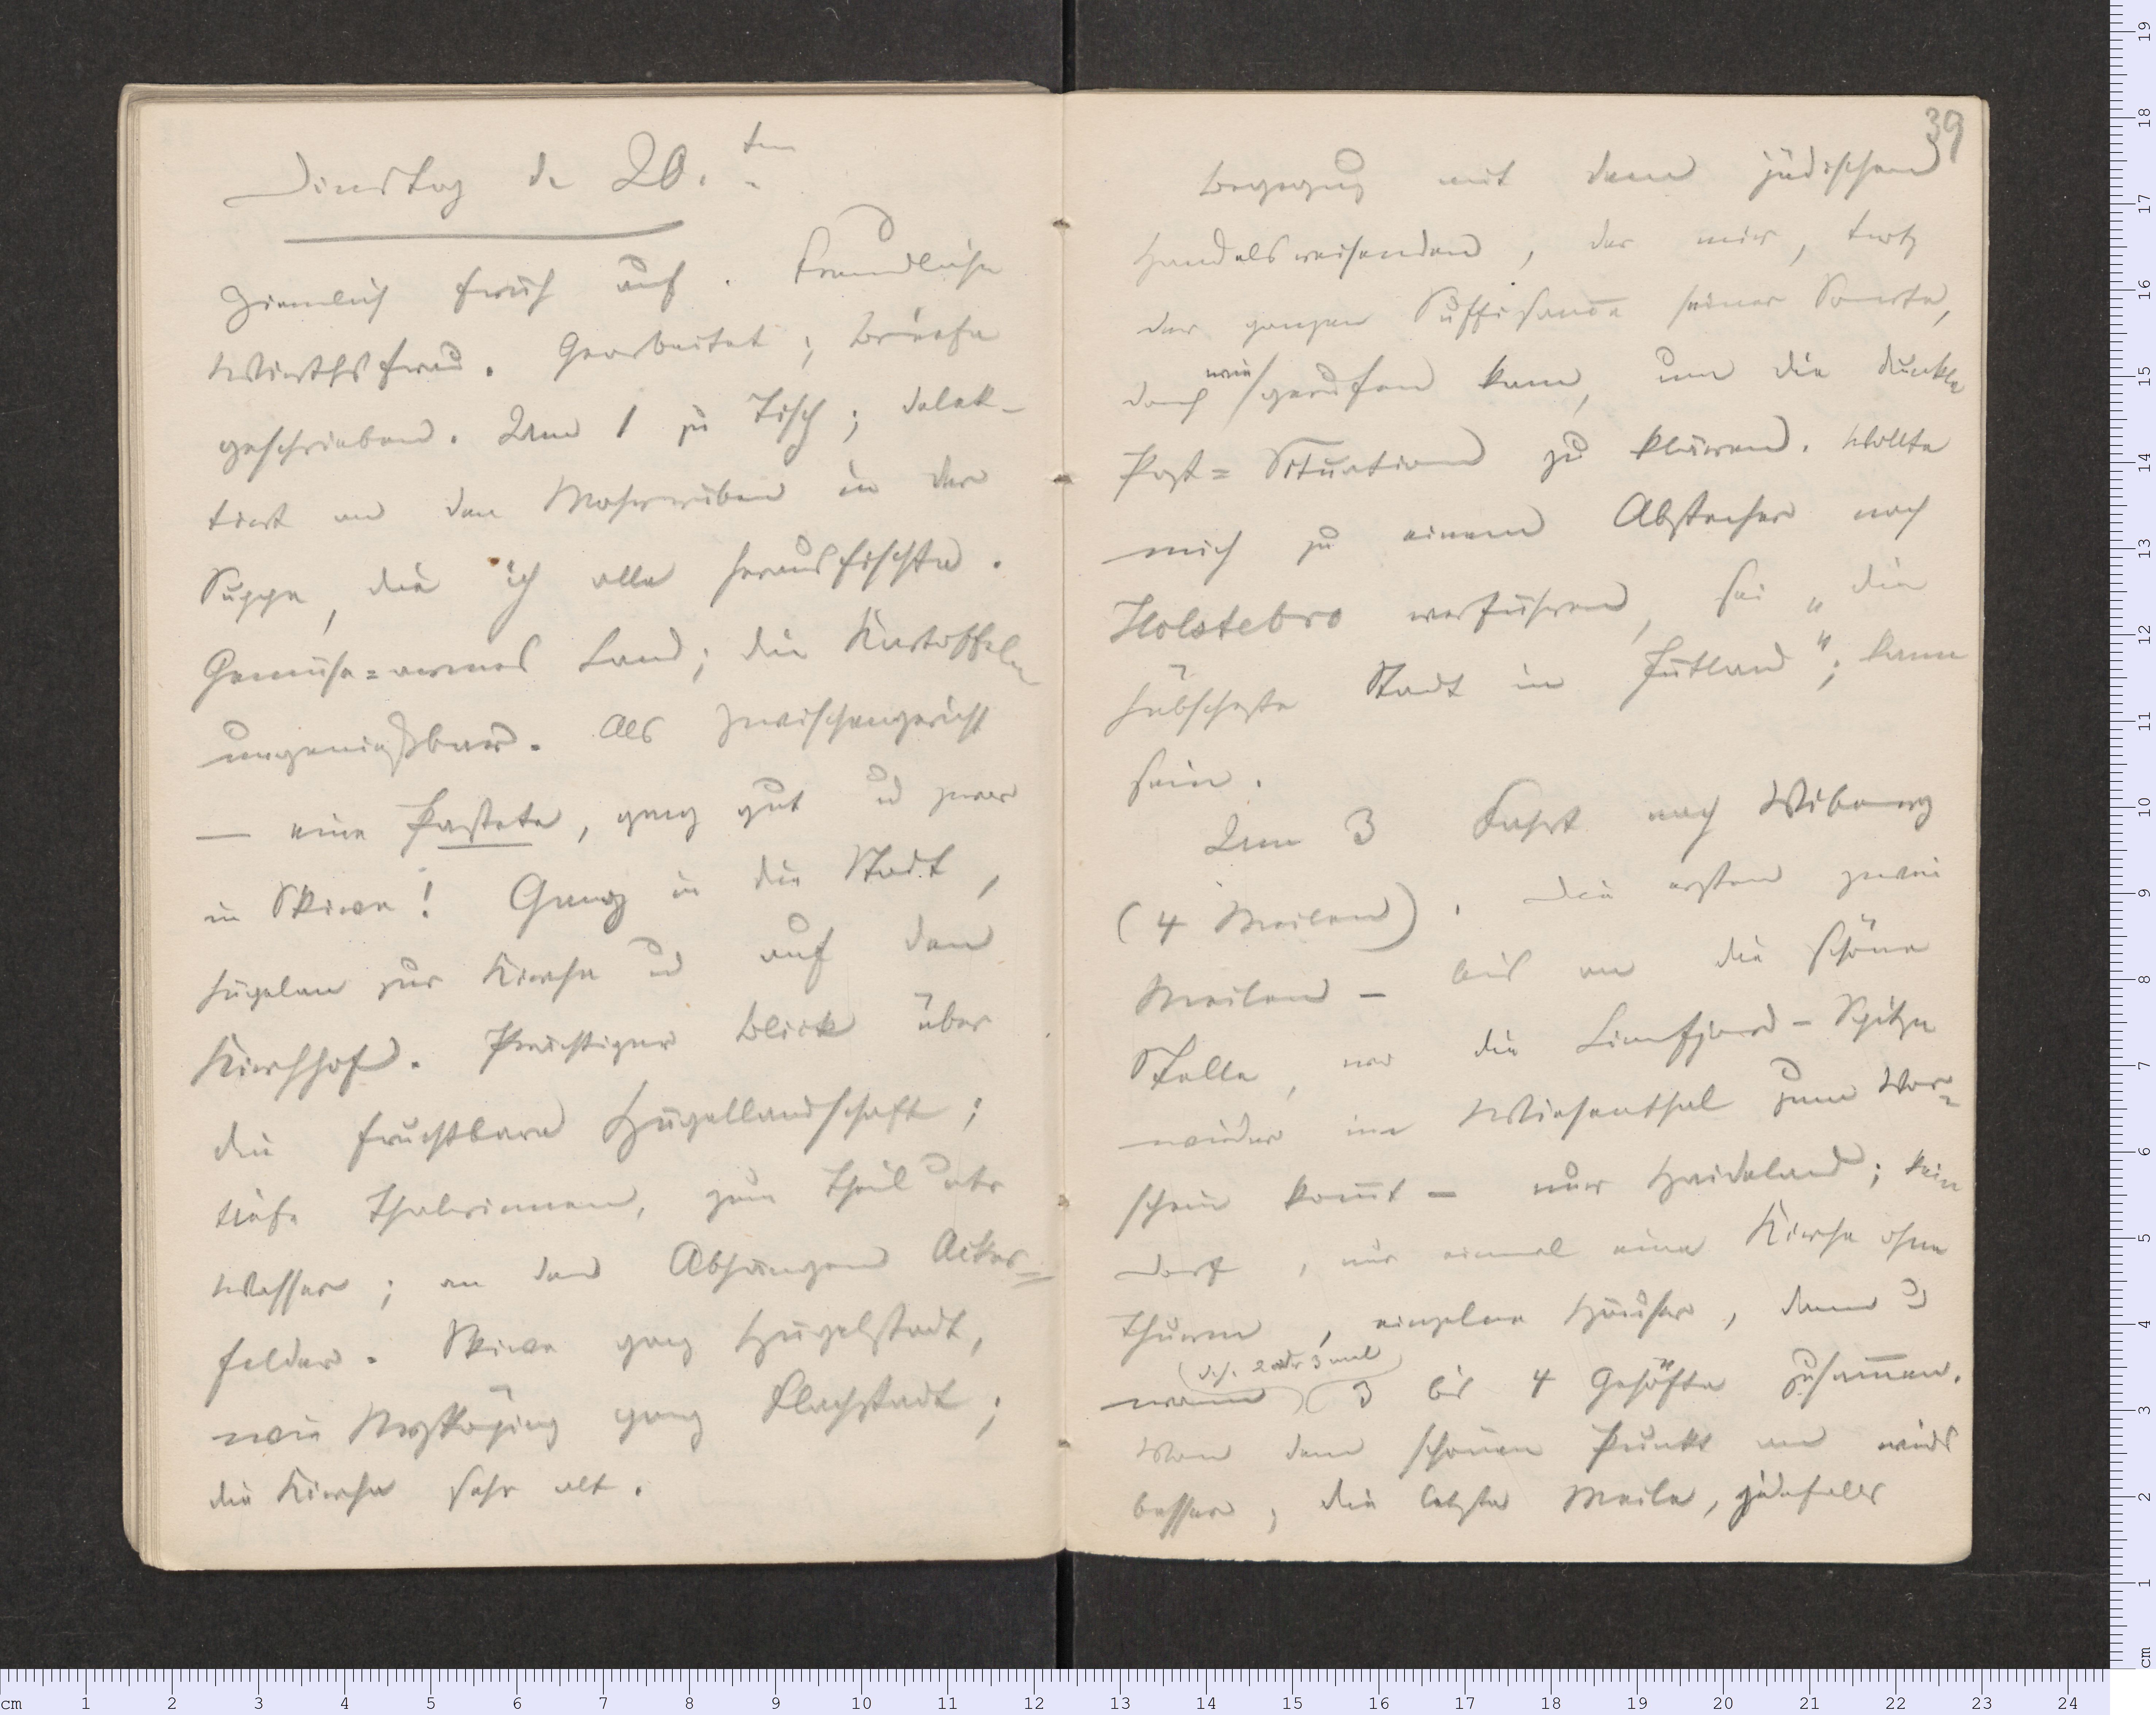 Dinstag d. 20.ten
Ziemlich früh auf. Freundliche
Wirthsfrau. Gearbeitet; Briefe
geschrieben. Um 1 zu Tisch; delek-
tirt an den Mohrrüben in der
Suppe, die ich alle herausfischte.
Gemüse=armes Land; die Kartoffeln
ungenießbar. Als Zwischengericht
— eine Pastete, ganz gut u zwar
in Skive! Gang in die Stadt,
hügelan zur Kirche u auf den
Kirchhof. Prächtiger Blick über
die fruchtbare Hügellandschaft;
tiefe Thalrinnen, zum Theil unter
Wasser; an den Abhängen Acker=
felder. Skive ganz Hügelstadt,
wie Nykjöping ganz Flachstadt;
die Kirche sehr alt.
39
Begegnung mit dem jüdischen
Handelsreisenden, der mir, trotz
der ganzen Suffisance seiner Sorte,
doch wie gerufen kam, um die dunkle
Post=Situation zu klären. Wollte
mich zu einem Abstecher nach
Holstebro verführen, sei „die
hübscheste Stadt in Jütland"; kann
sein.
Um 3 Fahrt nach Wiborg
(4 Meilen). Die ersten zwei
Meilen – bis an die schöne
Stelle, wo die Limfjord-Spitze
wieder im Wiesenthal zum Vor=
schein kommt – nur Haideland; kein
Dorf, nur einmal eine Kirche ohne
Thurm, einzelne Häuser, dann u
wann (d.h. 2 oder 3 mal) 3 bis 4 Gehöfte zusammen.
Von dem schönen Punkt an wirds
besser; die letzte Meile, jedenfalls